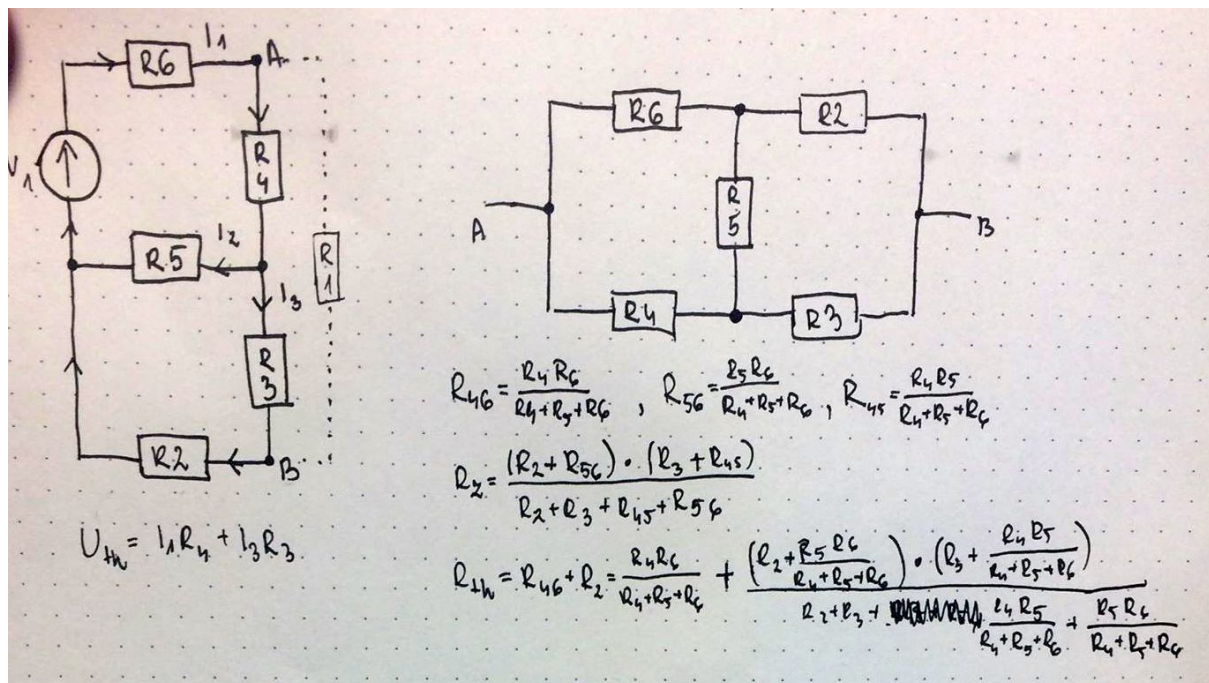 R6
I1
A
R4
V1
R5
I2
R1
I3
R3
R2
B
U_th = I1 R4 + I3 R3
R6
R2
R5
A
B
R4
R3
R_46 = R4 R6 / (R4 + R5 + R6) , R_56 = R5 R6 / (R4 + R5 + R6) , R_45 = R4 R5 / (R4 + R5 + R6)
R_z = (R2 + R56) · (R3 + R45) / (R2 + R3 + R45 + R56)
R_th = R46 + R_z = R4 R6 / (R4 + R5 + R6) + (R2 + R5 R6 / (R4 + R5 + R6)) · (R3 + R4 R5 / (R4 + R5 + R6)) / (R2 + R3 + R4 R5 / (R4 + R5 + R6) + R5 R6 / (R4 + R5 + R6))